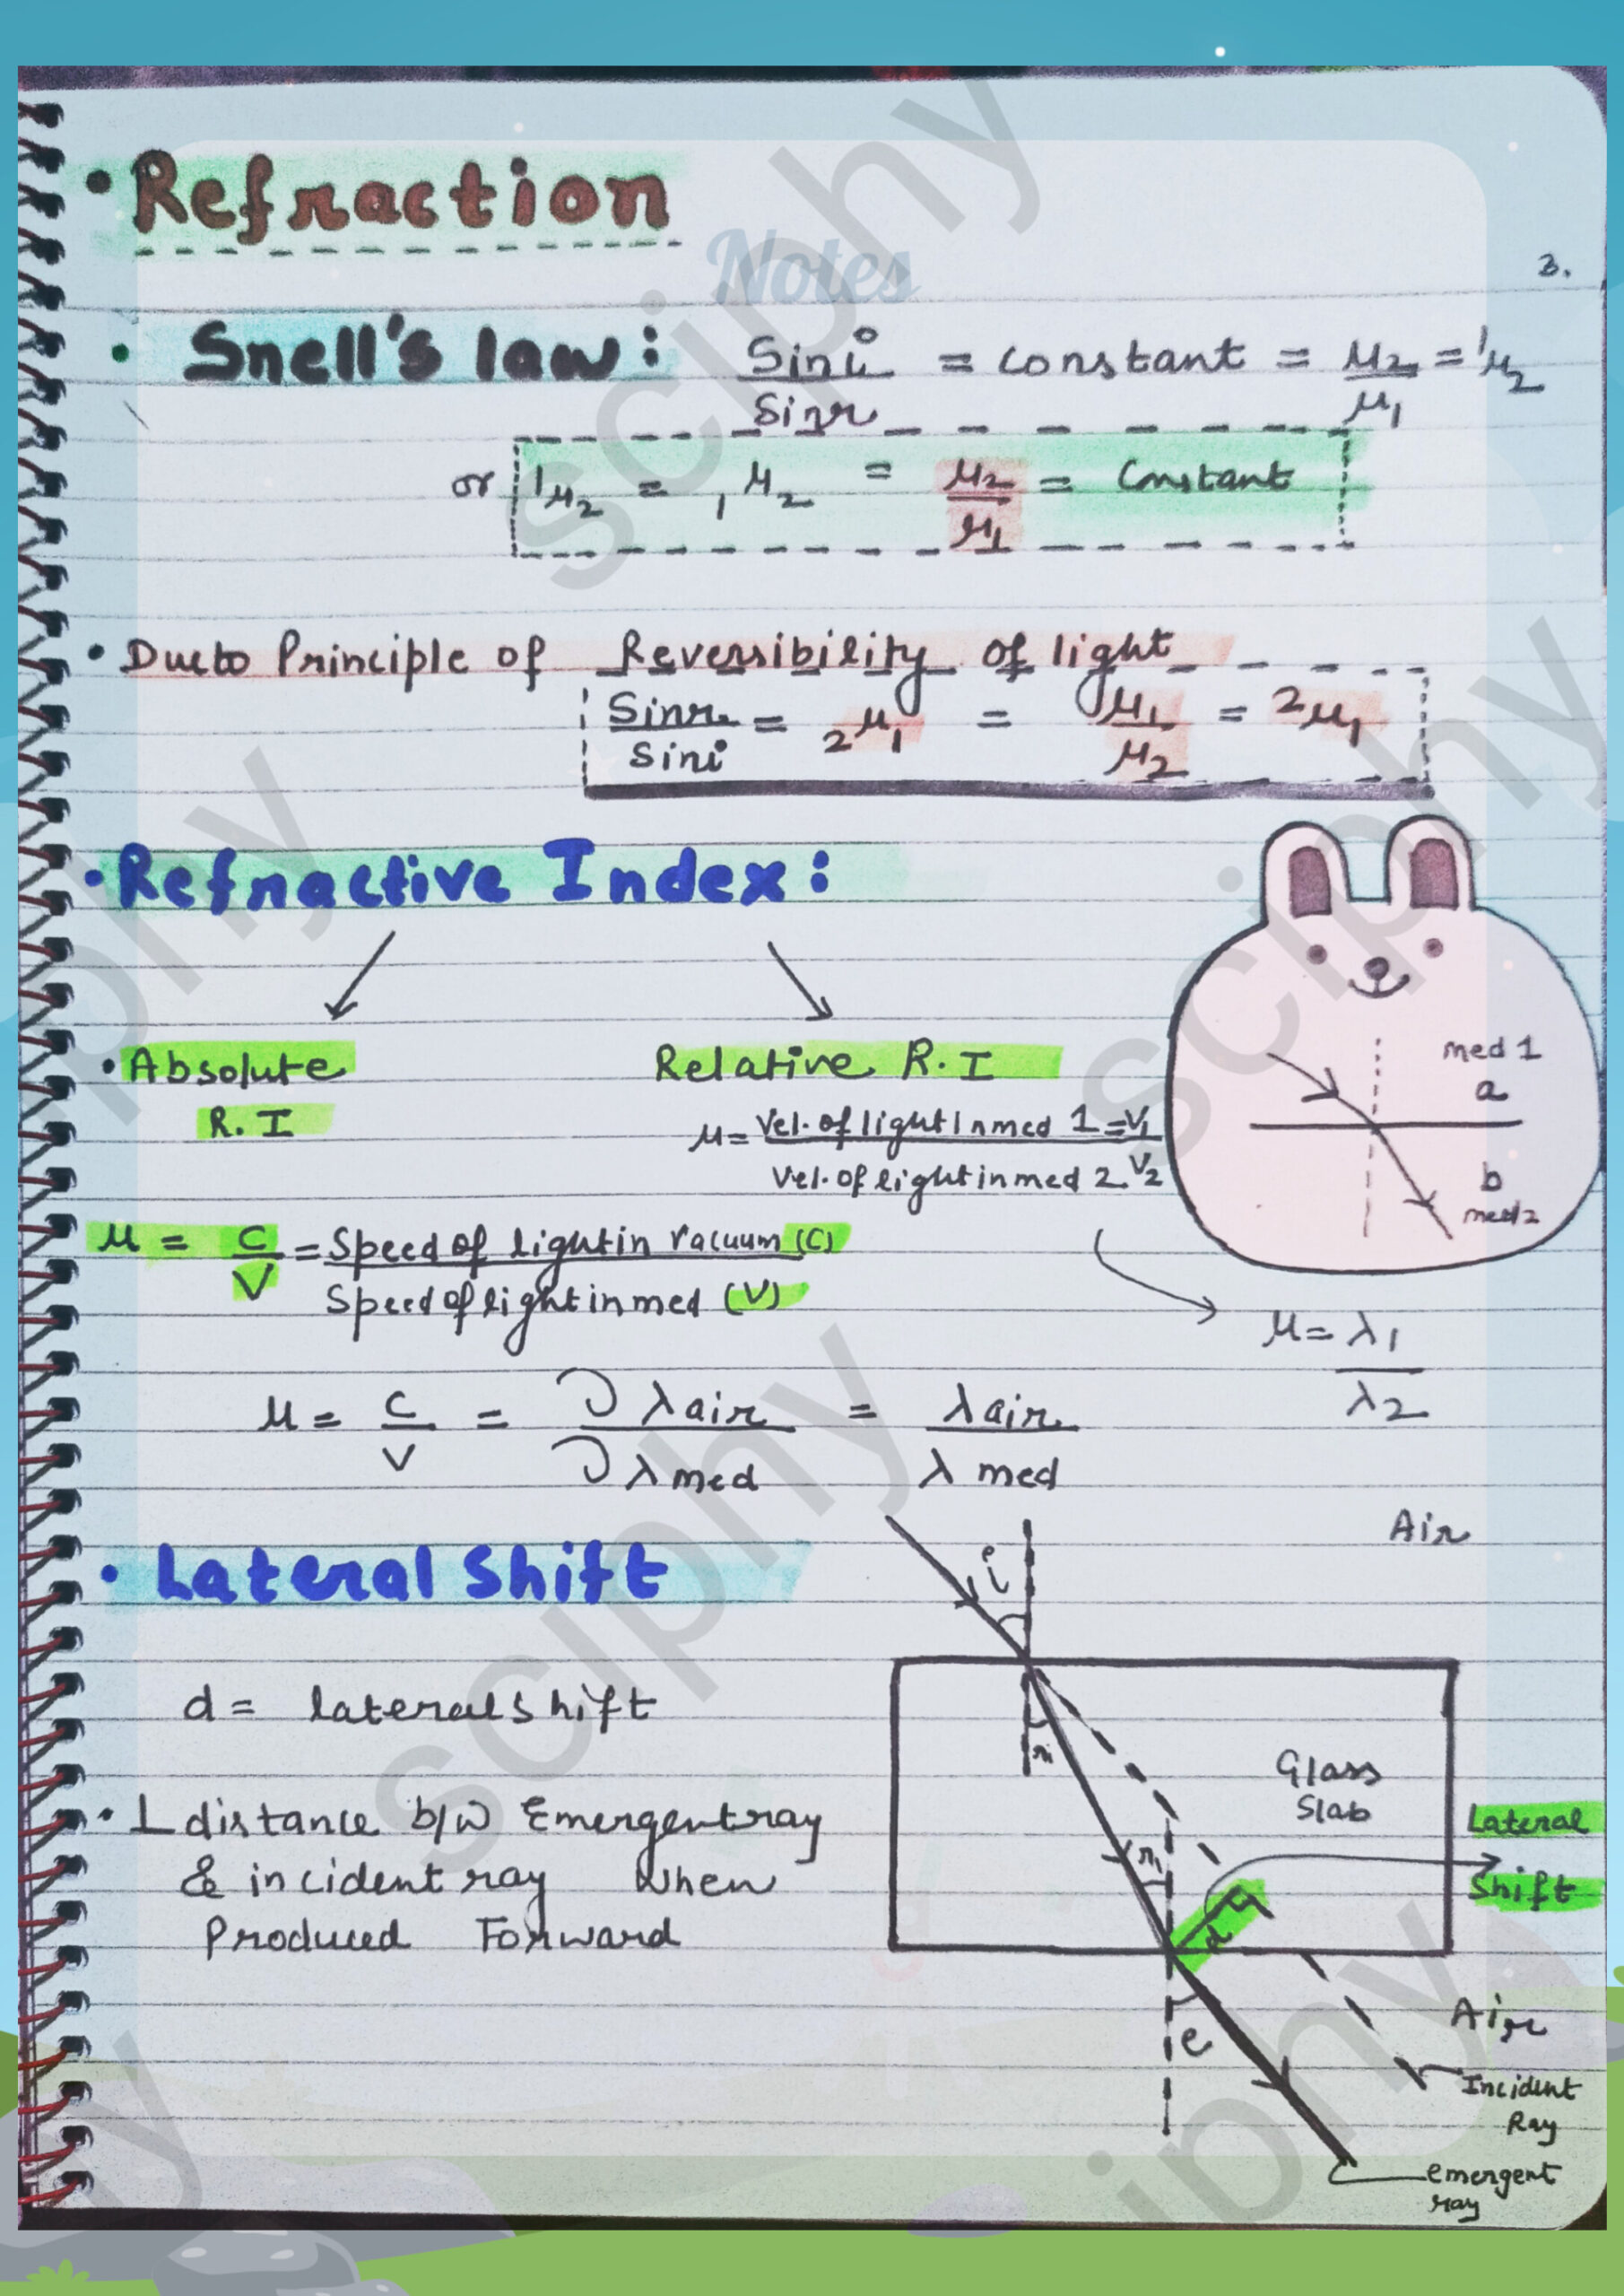 • Refraction
Notes
3.
• Snell's law: Sin i / Sin r = constant = μ2 / μ1 = ¹μ2
or ¹μ2 = ₁μ2 = μ2 / μ1 = Constant
• Dueto Principle of Reversibility of light
Sin r / Sin i = ₂μ1 = μ1 / μ2 = ²μ1
• Refractive Index:
• Absolute R.I
Relative R.I
μ = Vel. of light In med 1 / Vel. of light in med 2 = V1 / V2
med 1
a
b
med 2
μ = C / V = Speed of light in Vacuum (C) / Speed of light in med (V)
μ = λ1 / λ2
μ = C / V = υ λ air / υ λ med = λ air / λ med
• Lateral Shift
Air
i
r
d = lateral shift
Glass
Slab
• ⊥ distance b/w Emergent ray
& incident ray When
Produced Forward
r1
d
Lateral
Shift
e
Air
Incident
Ray
emergent
ray
sciphy
sciphy
sciphy
sciphy